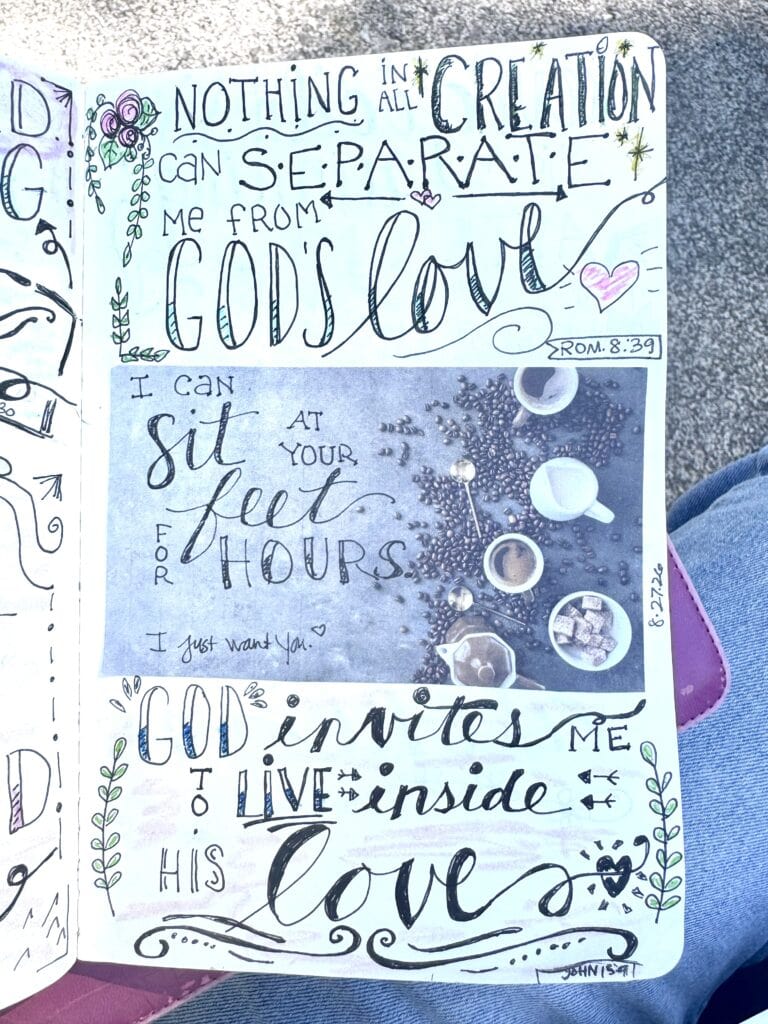 NOTHING IN ALL CREATION
CAN S·E·P·A·R·A·T·E
ME FROM
GOD'S love
ROM. 8:39
I CAN
sit AT YOUR
feet
FOR HOURS.
I just want You.
8·27·26
GOD invites ME
TO LIVE inside
HIS love
JOHN 15:9
D
G
D